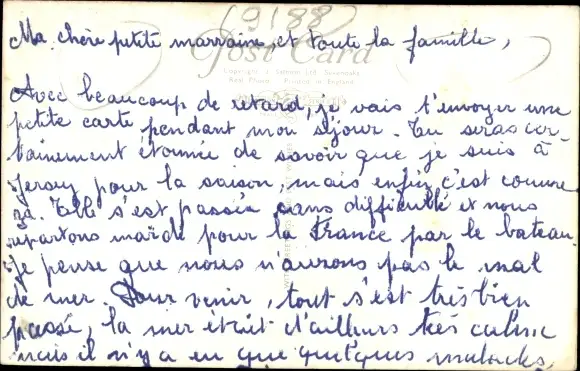 (9188)
Ma chère petite marraine, et toute la famille,
Post Card
Copyright J. Salmon Ltd. Sevenoaks
Real Photo Printed in England
Avec beaucoup de retard, je vais t'envoyer une
petite carte pendant mon séjour. Tu seras cer-
tainement étonnée de savoir que je suis à
Jersey pour la saison, mais enfin c'est comme
ça. Elle s'est passée sans difficulté et nous
repartons mardi pour la France par le bateau.
Je pense que nous n'aurons pas le mal
de mer. Pour venir, tout s'est très bien
passé, la mer était d'ailleurs très calme
mais il n'y a eu que quelques malades.